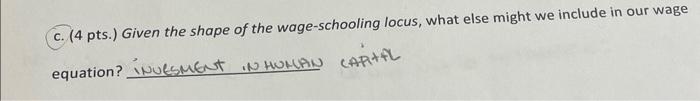 c. (4 pts.) Given the shape of the wage-schooling locus, what else might we include in our wage
equation? INVESMENT IN HUMAN CAPITAL